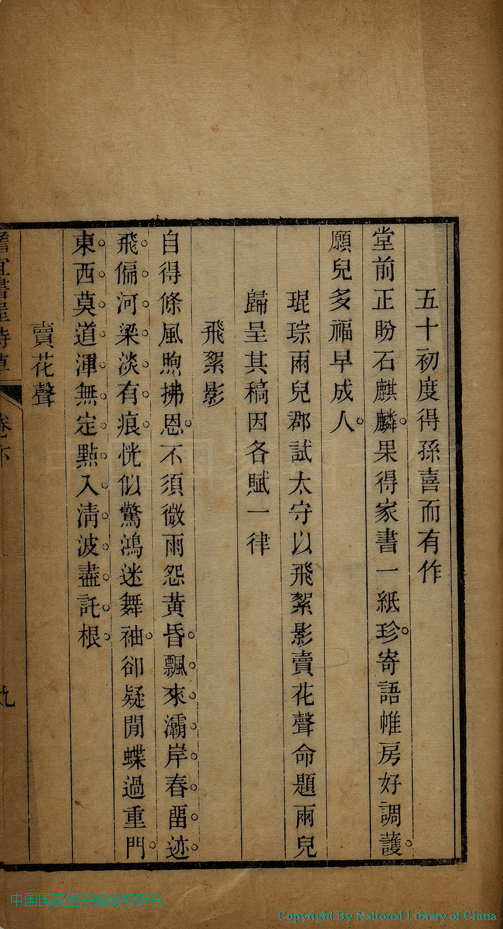 五十初度得孫喜而有作
堂前正盼石麒麟果得家書一紙珍寄語帷房好調護
願兒多福早成人
琨琮兩兒郡試太守以飛絮影賣花聲命題兩兒
歸呈其稿因各賦一律
飛絮影
自得條風煦拂恩不須微雨怨黃昏飄來灞岸春畱迹
飛偏河梁淡有痕恍似驚鴻迷舞袖卻疑閒蝶過重門
東西莫道渾無定點入淸波盡託根
賣花聲
宜書屋詩草
九
Copyright By National Library of China